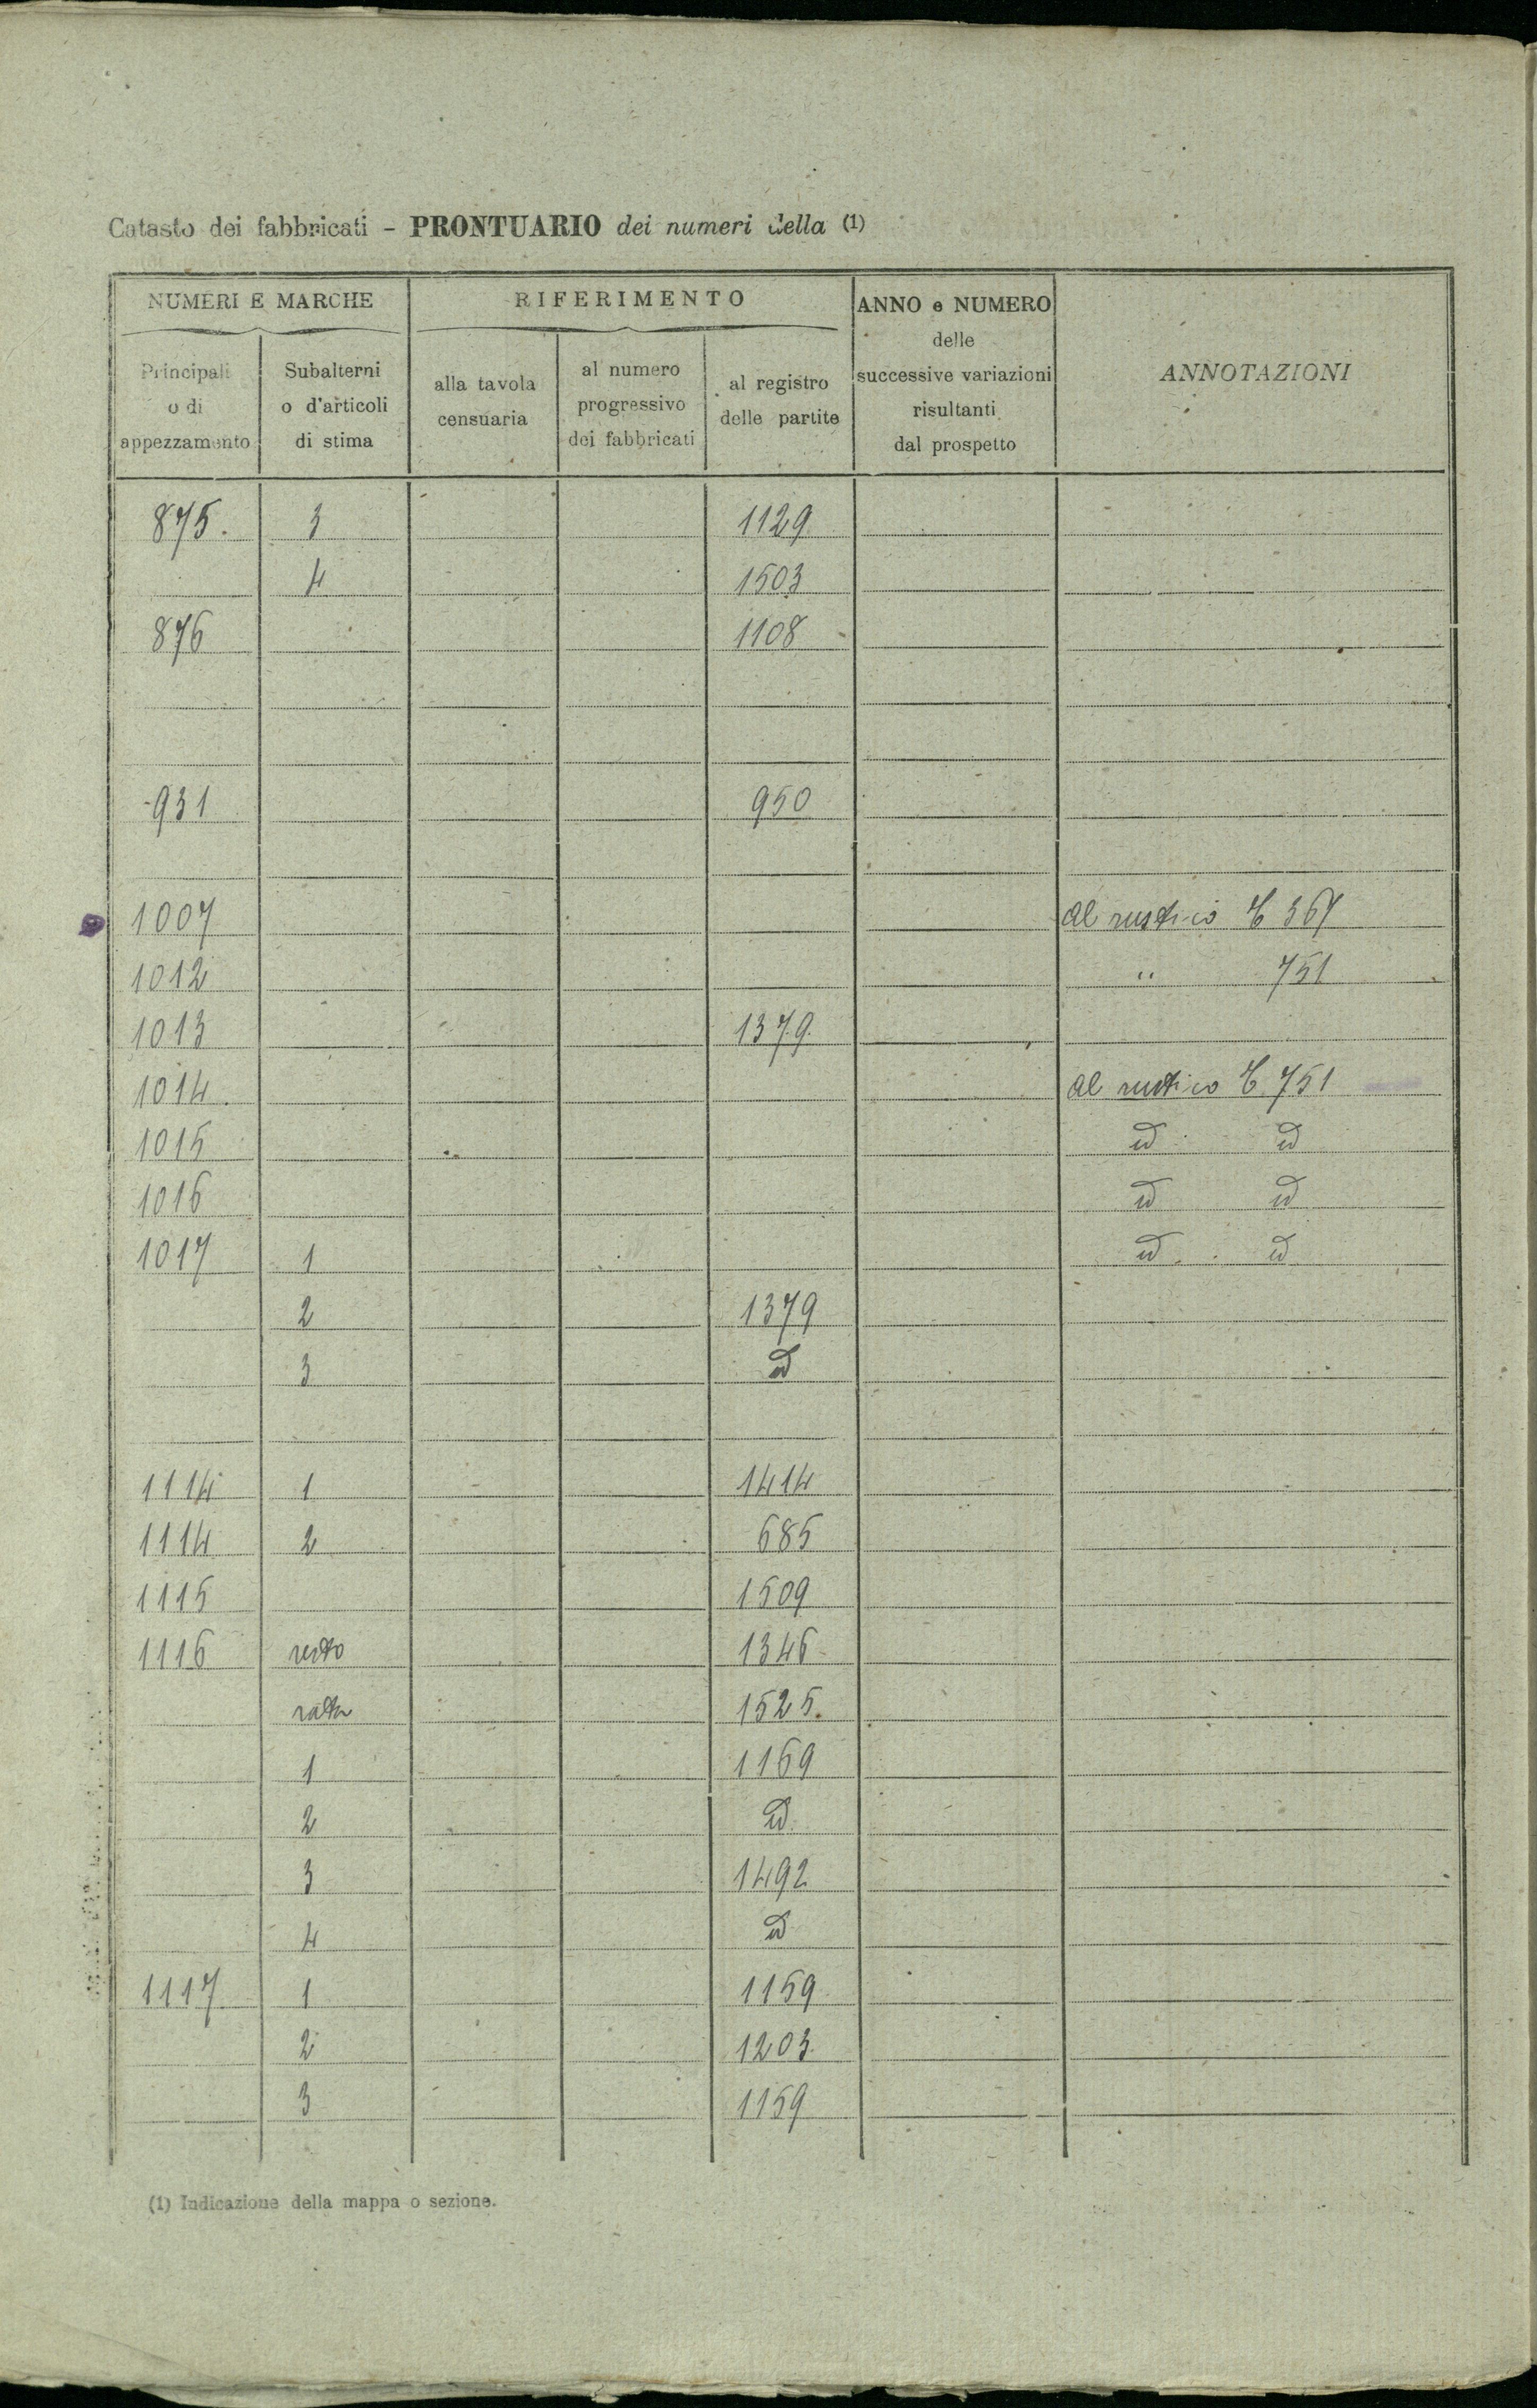 Catasto dei fabbricati – PRONTUARIO dei numeri della (1)
NUMERI E MARCHE
RIFERIMENTO
ANNO e NUMERO
delle
successive variazioni
risultanti
dal prospetto
ANNOTAZIONI
Principali
o di
appezzamento
Subalterni
o d'articoli
di stima
alla tavola
censuaria
al numero
progressivo
dei fabbricati
al registro
delle partite
875. 3 1129
4 1503
876 1108
931 950
1007 al rustico 367
1012 " 751
1013 1379
1014. al rustico 751
1015 id id
1016 id id
1017 1 id id
2 1379
3 id
1114 1 1414
1114 2 685
1115 1509
1116 resto 1346
1525.
1 1169
2 id
3 1492
4 id
1117 1 1159
2 1203
3 1159
(1) Indicazione della mappa o sezione.